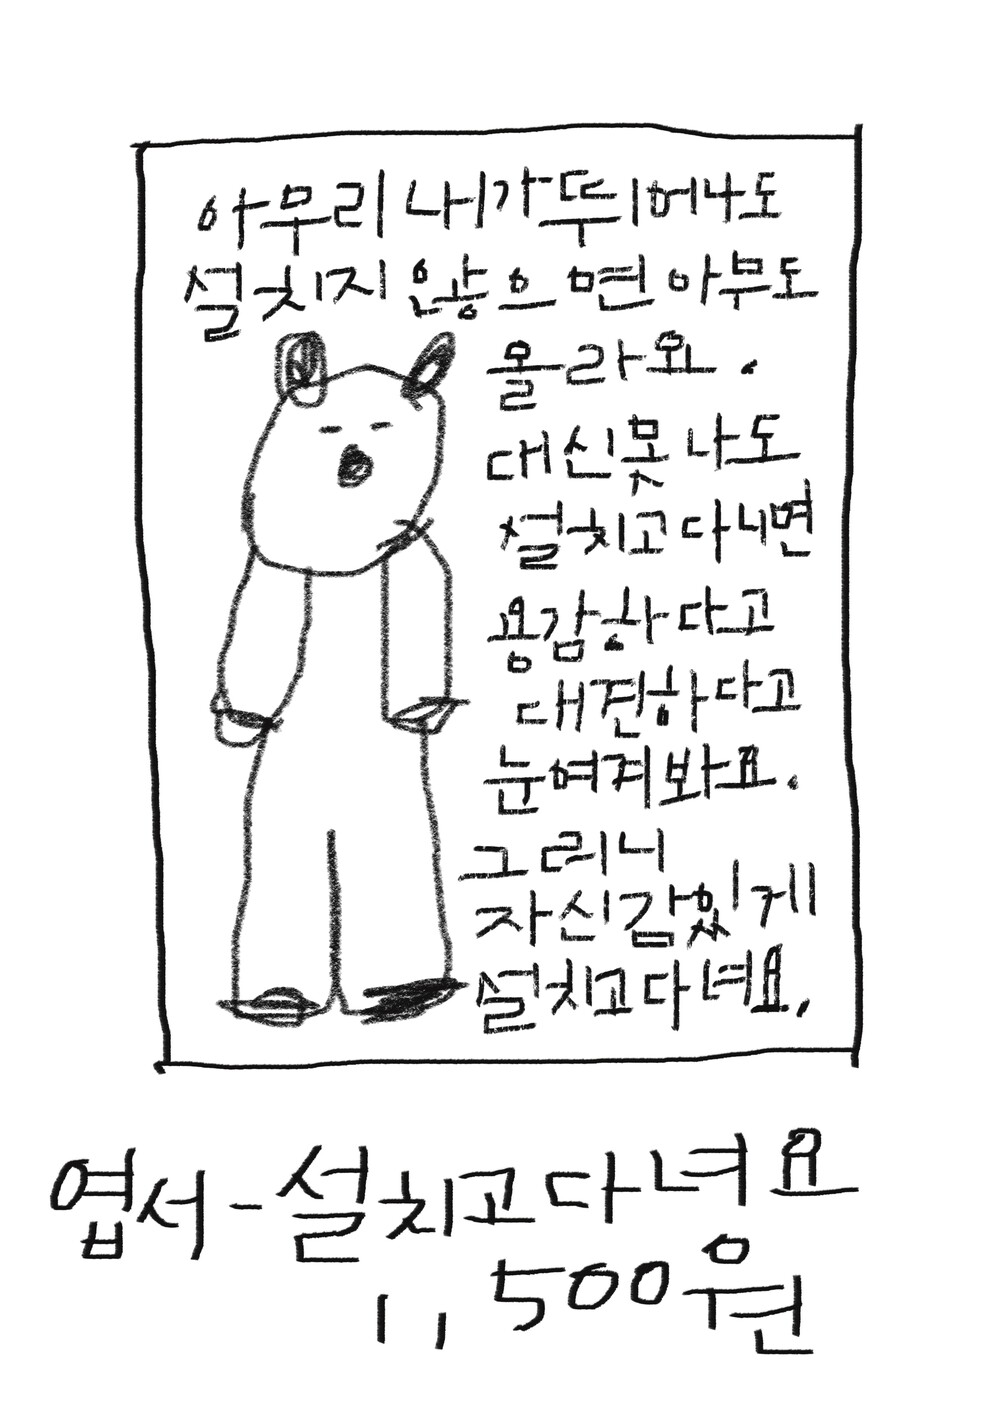 아무리 내가 뛰어나도
설치지 않으면 아무도
몰라요.
대신 못나도
설치고 다니면
용감하다고
대견하다고
눈여겨봐요.
그러니
자신감있게
설치고 다녀요,
엽서-설치고다녀요
1,500원